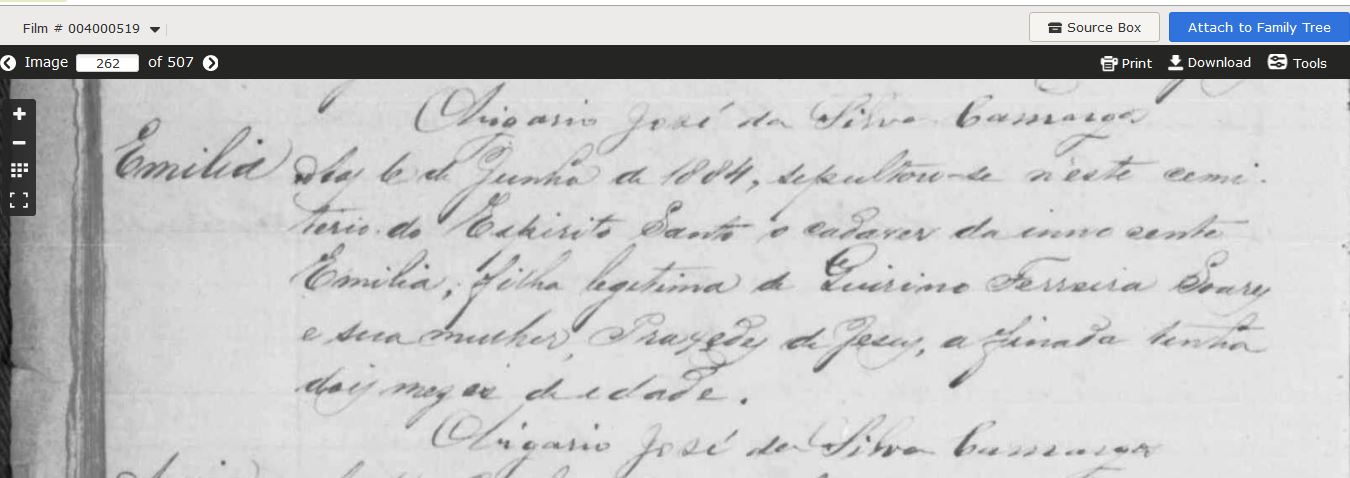 Film # 004000519
Source Box
Attach to Family Tree
Image 262 of 507
Print
Download
Tools
O Vigario José da Silva Camargo
Emilia
Aos 6 de Junho de 1884, sepultou-se n'este cemi-
terio do Espirito Santo o cadaver da innocente
Emilia, filha legitima de Quirino Ferreira Soares
e sua mulher, Praxedes de Jesus, a finada tinha
dois mezes de edade.
O Vigario José da Silva Camargo